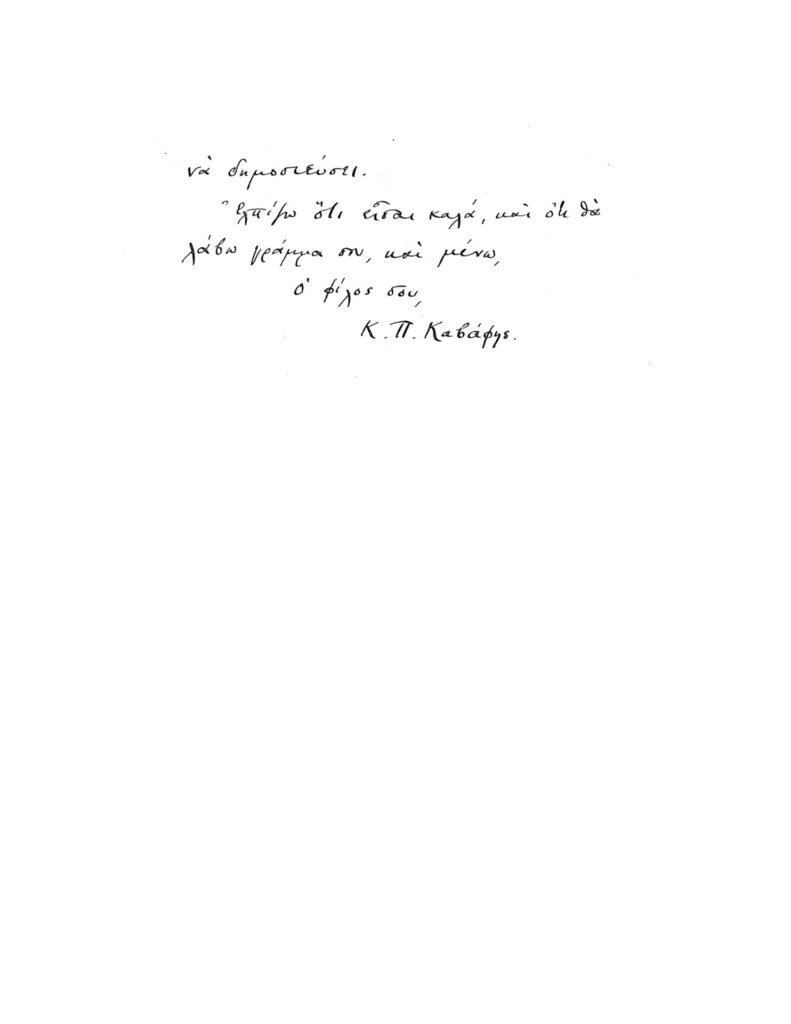 νὰ δημοσιεύσει.
Ἐλπίζω ὅτι εἶσαι καλά, καὶ ὅτι θὰ
λάβω γράμμα σου, καὶ μένω,
ὁ φίλος σου,
Κ. Π. Καβάφης.